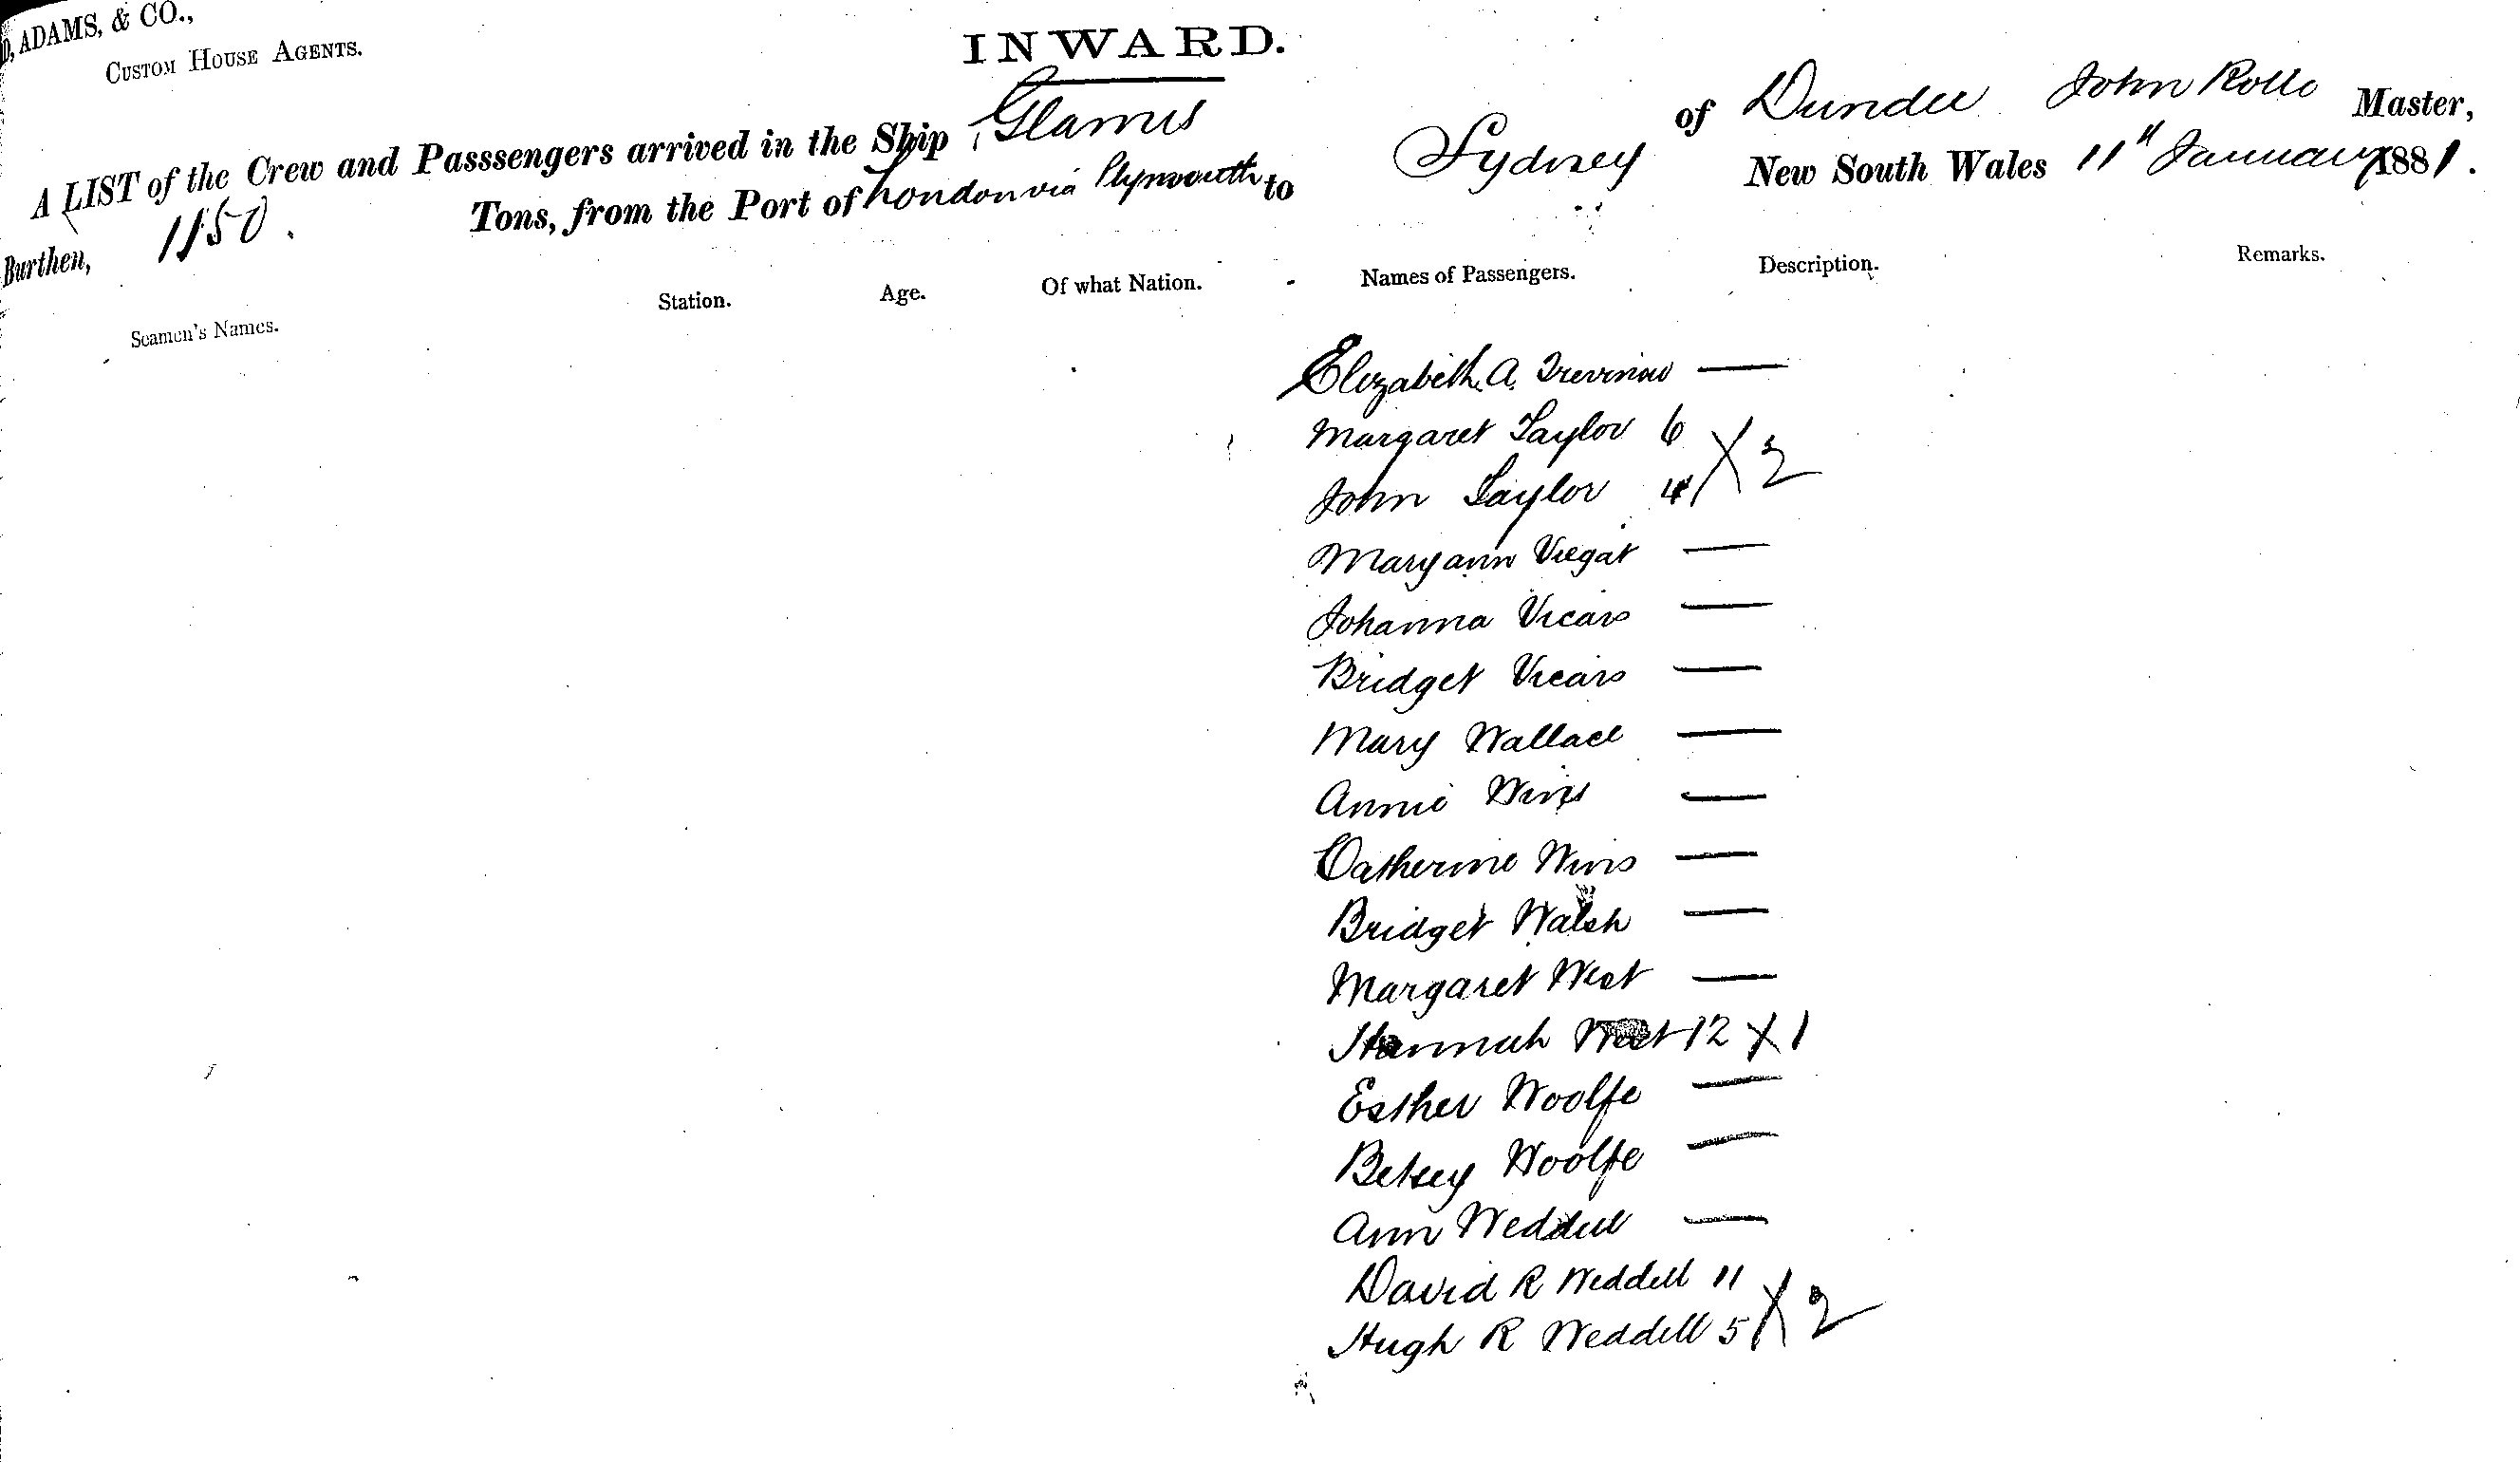 ADAMS, & CO.,
CUSTOM HOUSE AGENTS.
INWARD.
A LIST of the Crew and Passsengers arrived in the Ship Glamis of Dundee John Rollo Master,
Burthen, 1150. Tons, from the Port of London via Plymouth to Sydney New South Wales 11th January 1881.
Seamen's Names. Station. Age. Of what Nation. Names of Passengers. Description. Remarks.
Elizabeth A. —
Margaret Taylor 6
John Taylor 4 X 2
Maryann —
Johanna Vicars —
Bridget Vicars —
Mary Wallace —
Annie —
Catherine —
Bridget Walsh —
Margaret West —
Hannah West 12 X 1
Esther Woolfe —
Betsey Woolfe —
Ann Weddell —
David R Weddell 11
Hugh R Weddell 5 X 2